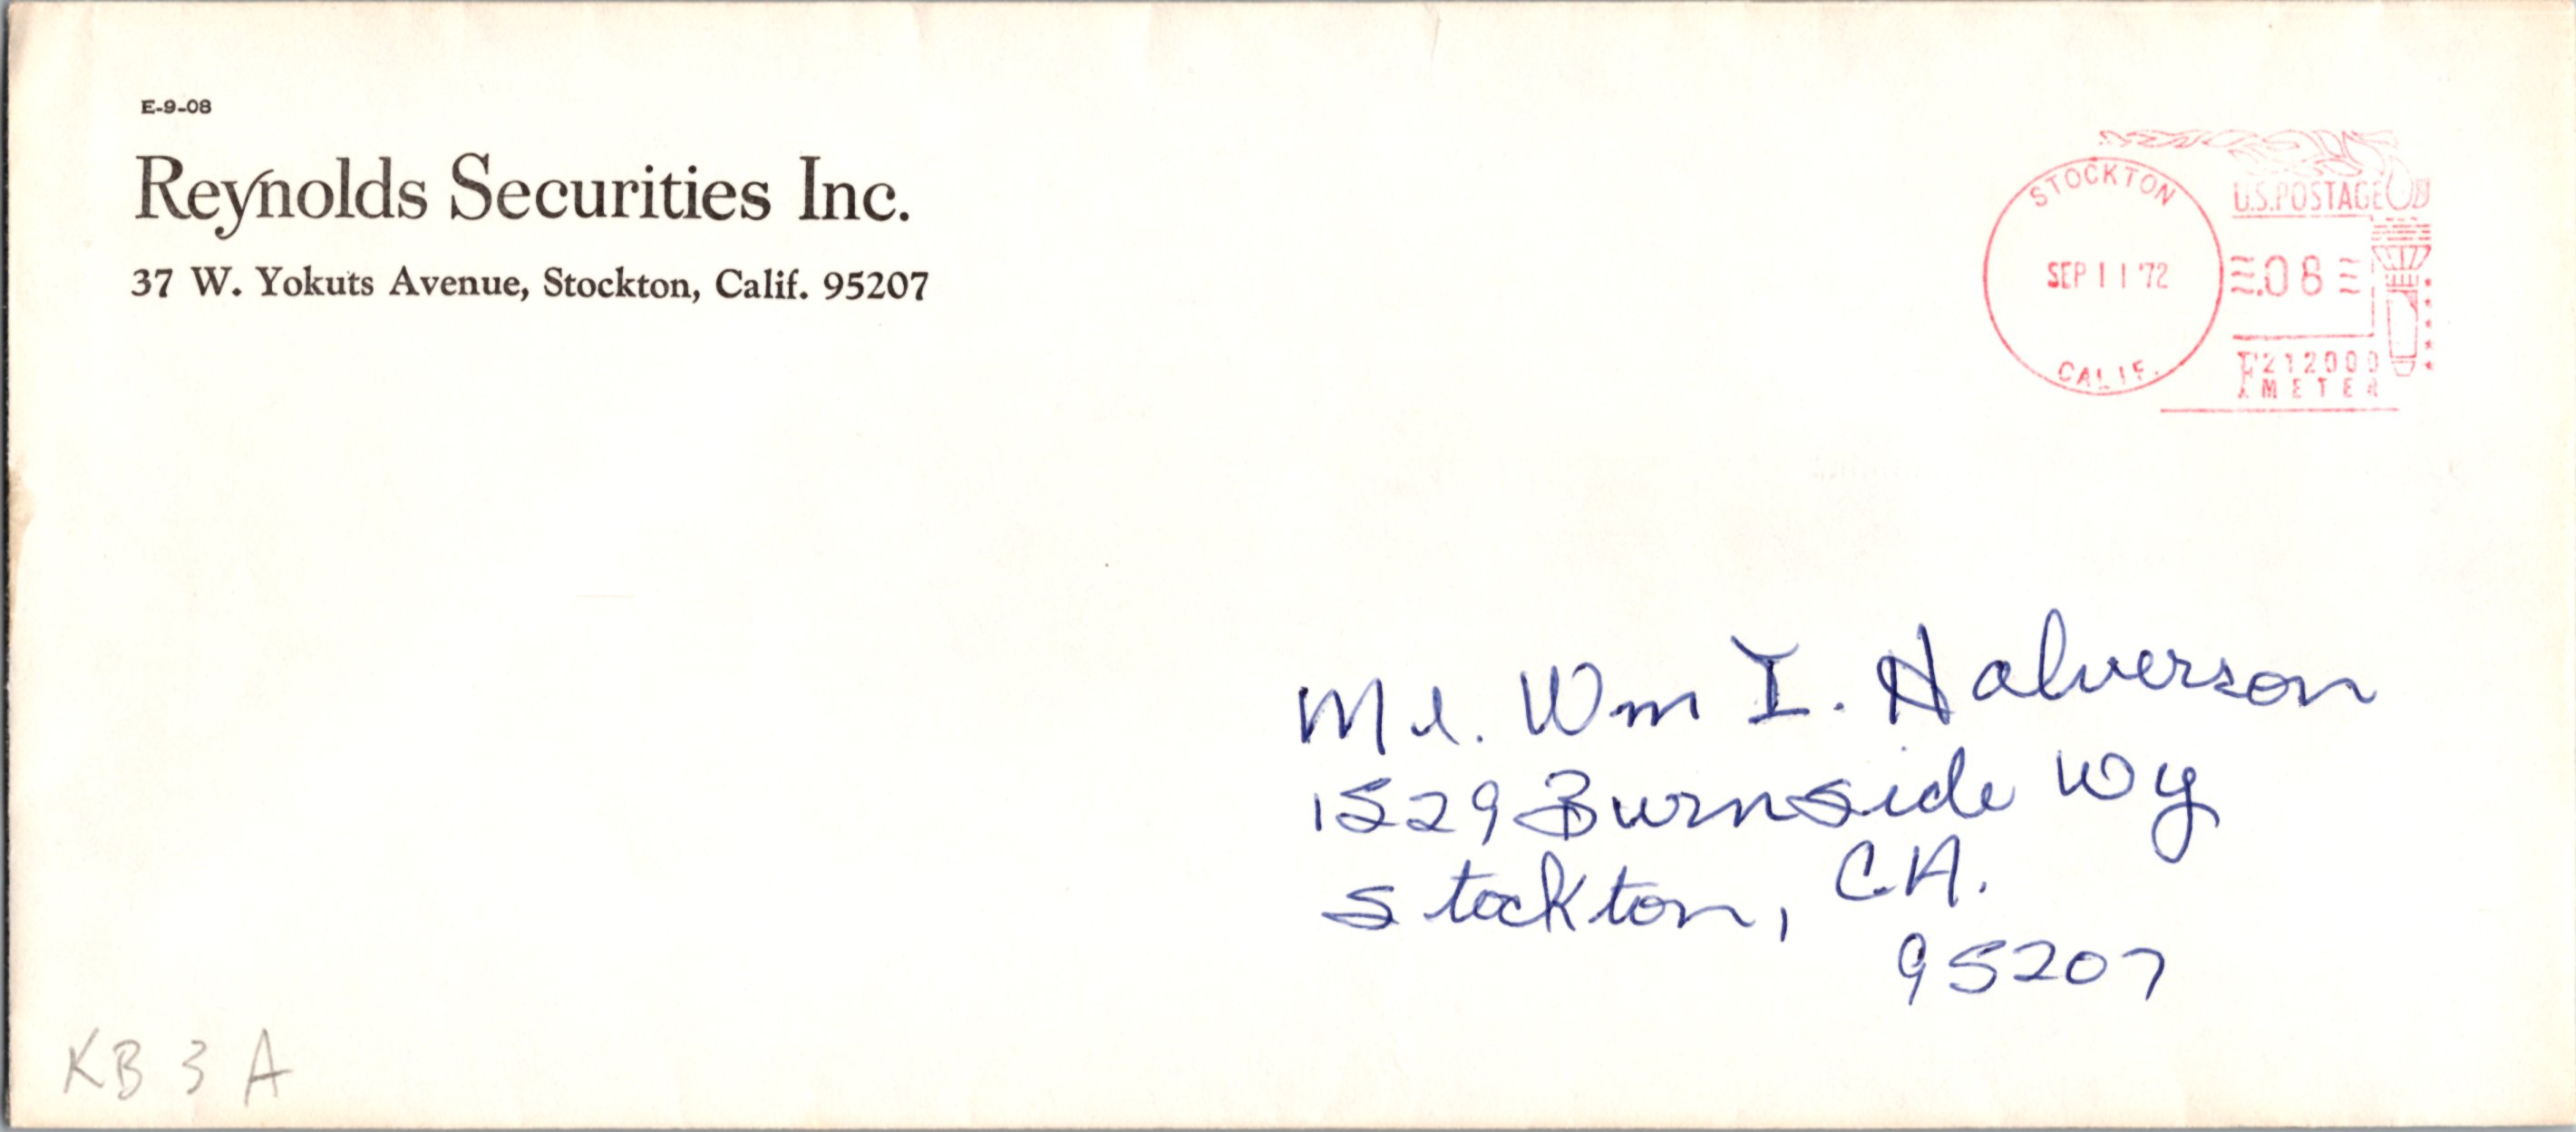 E-9-08
Reynolds Securities Inc.
37 W. Yokuts Avenue, Stockton, Calif. 95207
STOCKTON
SEP 11 '72
CALIF.
U.S. POSTAGE
.08
212000
METER
Mr. Wm I. Halverson
1529 Burnside Wy
Stockton, CA.
95207
KB 3 A